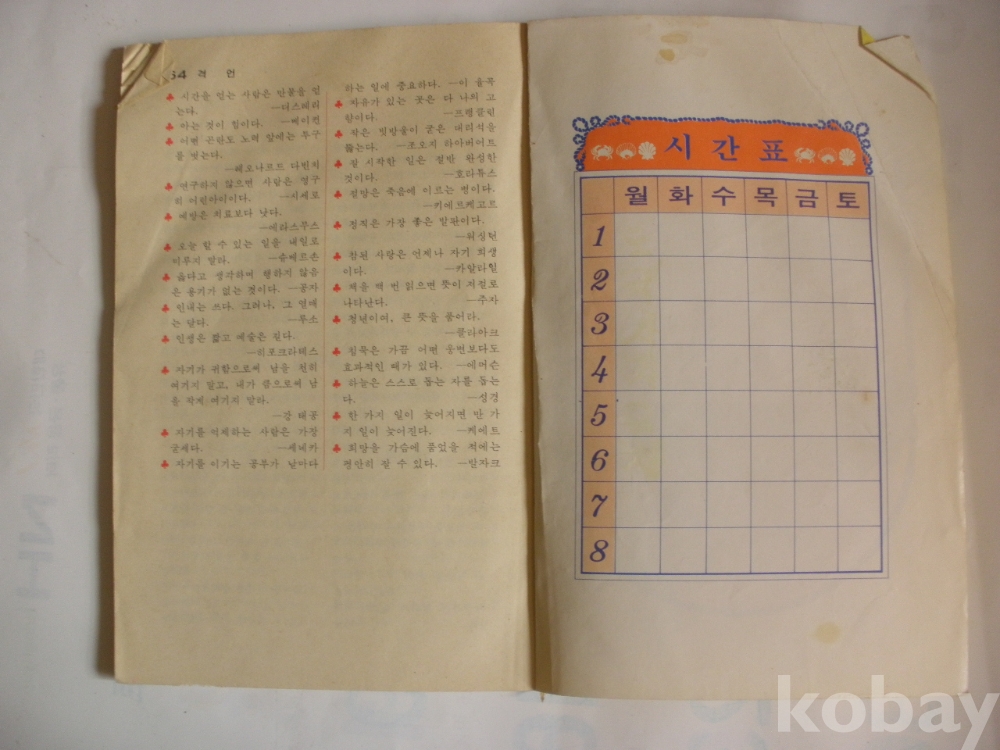 64 격 언
♣ 시간을 얻는 사람은 만물을 얻
는다. —디스레리
♣ 아는 것이 힘이다. —베이컨
♣ 어떤 곤란도 노력 앞에는 투구
를 벗는다.
—레오나르트 다빈치
♣ 연구하지 않으면 사람은 영구
히 어린아이이다. —시세로
♣ 예방은 치료보다 낫다.
—에라스무스
♣ 오늘 할 수 있는 일을 내일로
미루지 말라. —슘페르손
♣ 옳다고 생각하며 행하지 않음
은 용기가 없는 것이다. —공자
♣ 인내는 쓰다. 그러나, 그 열매
는 달다. —루소
♣ 인생은 짧고 예술은 길다.
—히포크라테스
♣ 자기가 귀함으로써 남을 천히
여기지 말고, 내가 큼으로써 남
을 작게 여기지 말라.
—강 태공
♣ 자기를 억제하는 사람은 가장
굳세다. —세네카
♣ 자기를 이기는 공부가 날마다
하는 일에 중요하다. —이 율곡
♣ 자유가 있는 곳은 다 나의 고
향이다. —프랭클린
♣ 작은 빗방울이 굳은 대리석을
뚫는다. —조오지 하아버어트
♣ 잘 시작한 일은 절반 완성한
것이다. —호라튜스
♣ 절망은 죽음에 이르는 병이다.
—키에르케고르
♣ 정직은 가장 좋은 발판이다.
—워싱턴
♣ 참된 사랑은 언제나 자기 희생
이다. —카알라힐
♣ 책을 백 번 읽으면 뜻이 저절로
나타난다. —주자
♣ 청년이여, 큰 뜻을 품어라.
—클라아크
♣ 침묵은 가끔 어떤 웅변보다도
효과적인 때가 있다. —에머슨
♣ 하늘은 스스로 돕는 자를 돕는
다. —성경
♣ 한 가지 일이 늦어지면 만 가
지 일이 늦어진다. —케에트
♣ 희망을 가슴에 품었을 적에는
편안히 잘 수 있다. —발자크
시간표
월 화 수 목 금 토
1
2
3
4
5
6
7
8
kobay